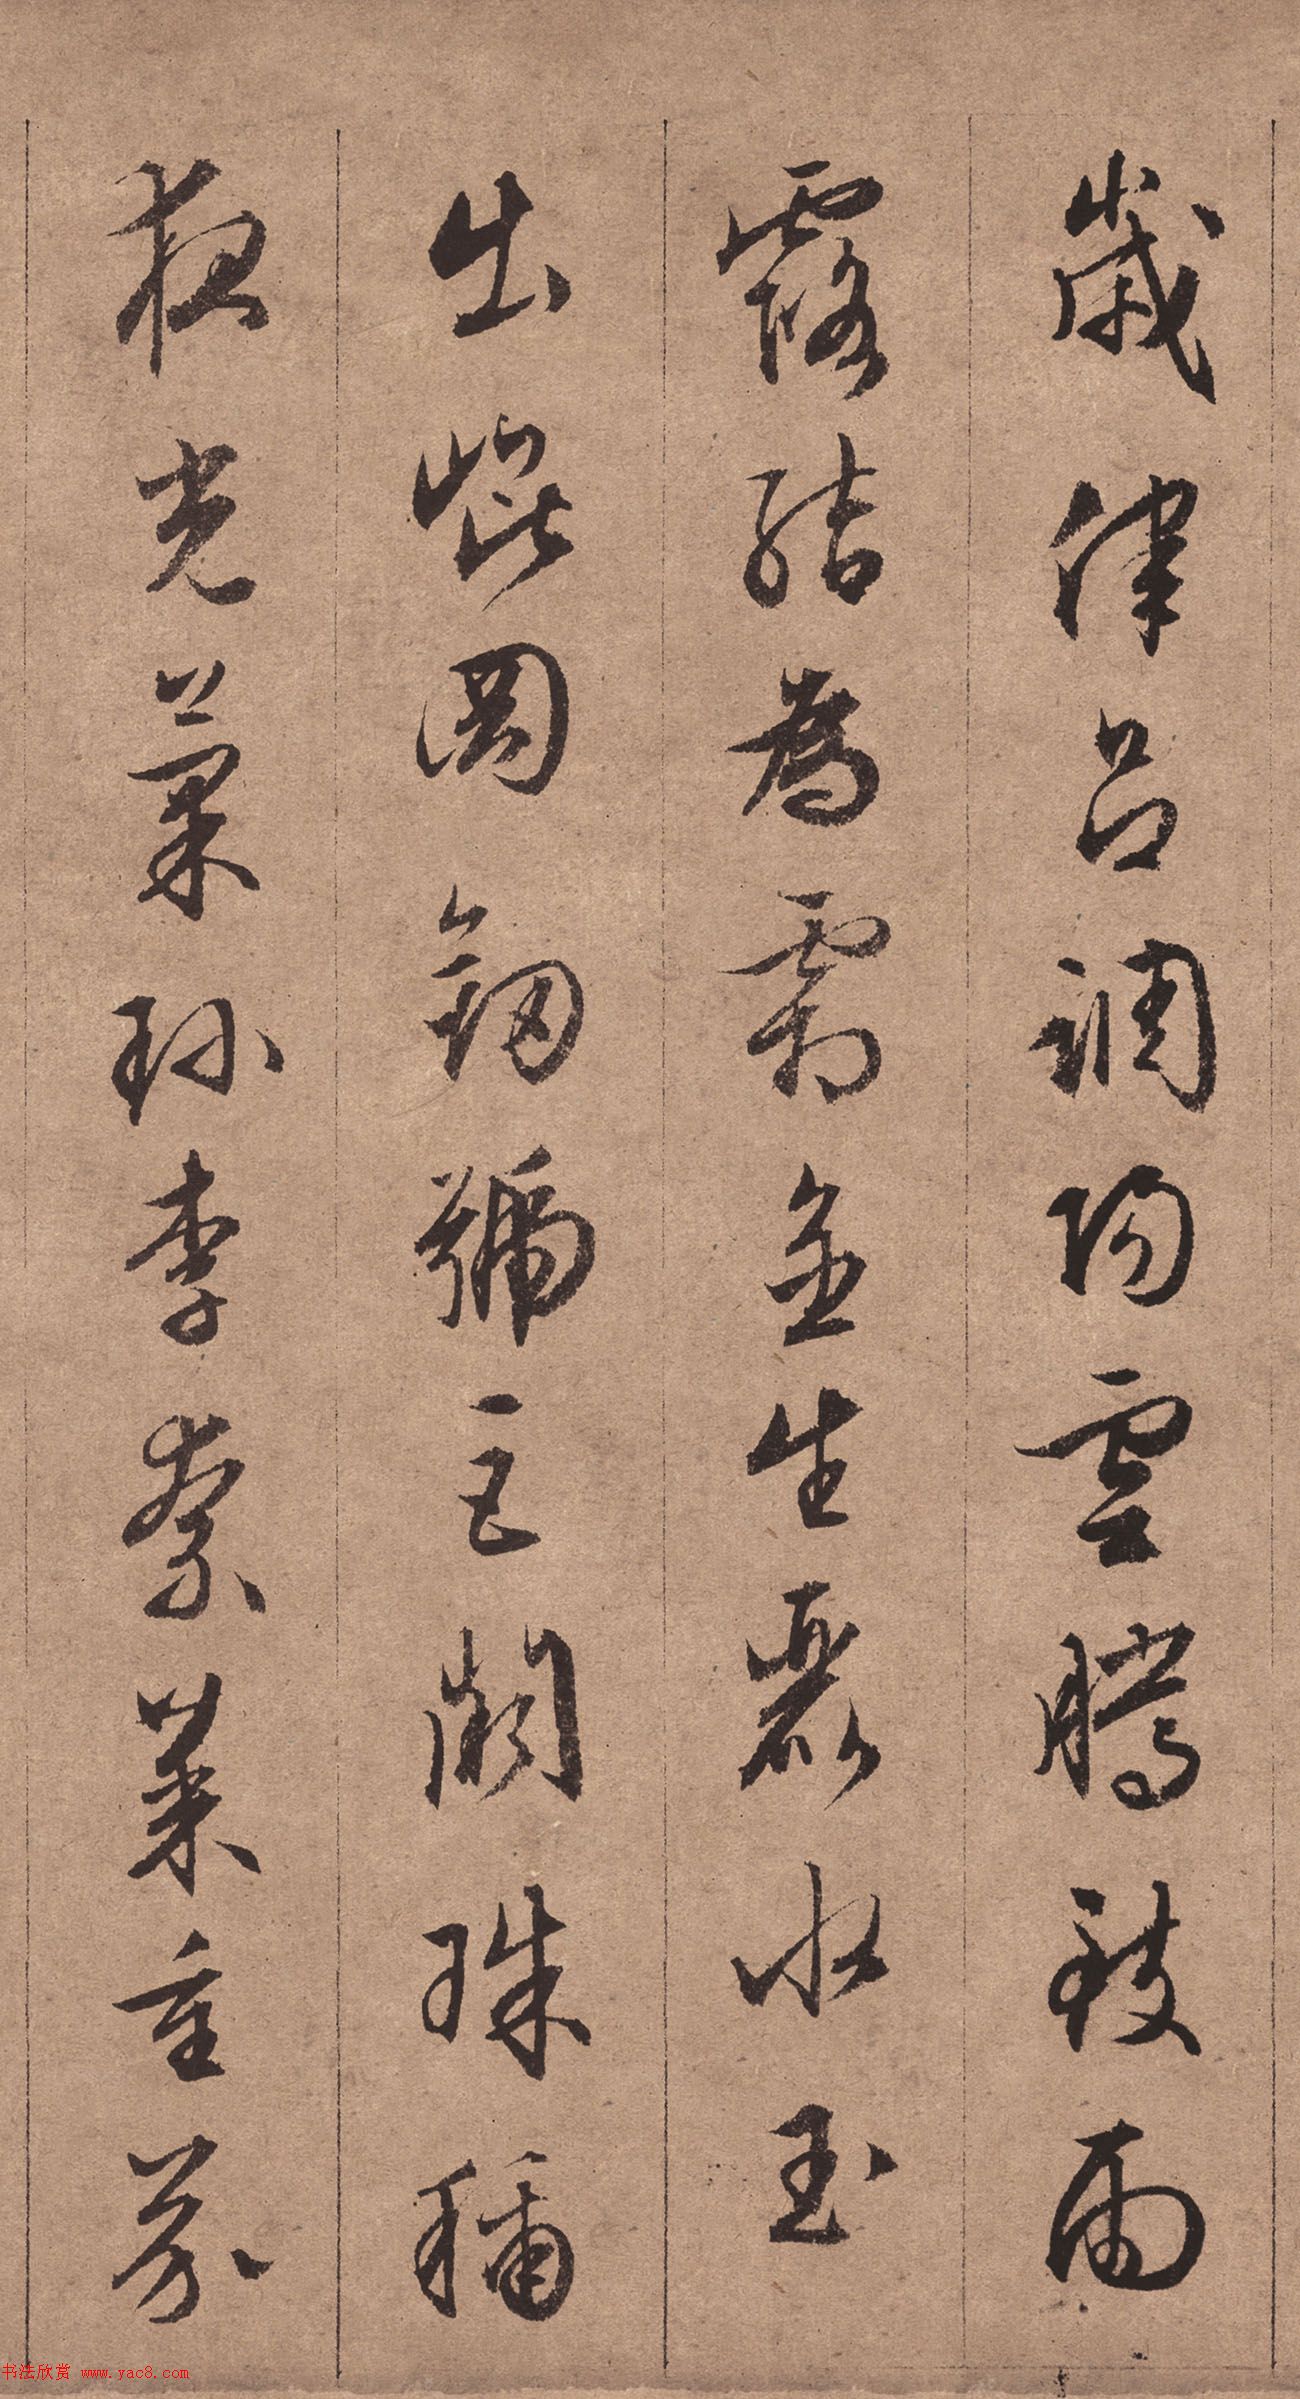 歲律呂調陽雲騰致雨
露結為霜金生麗水玉
出崐岡劒號巨闕珠稱
夜光菓珎李柰菜重芥
书法欣赏 www.yac8.com